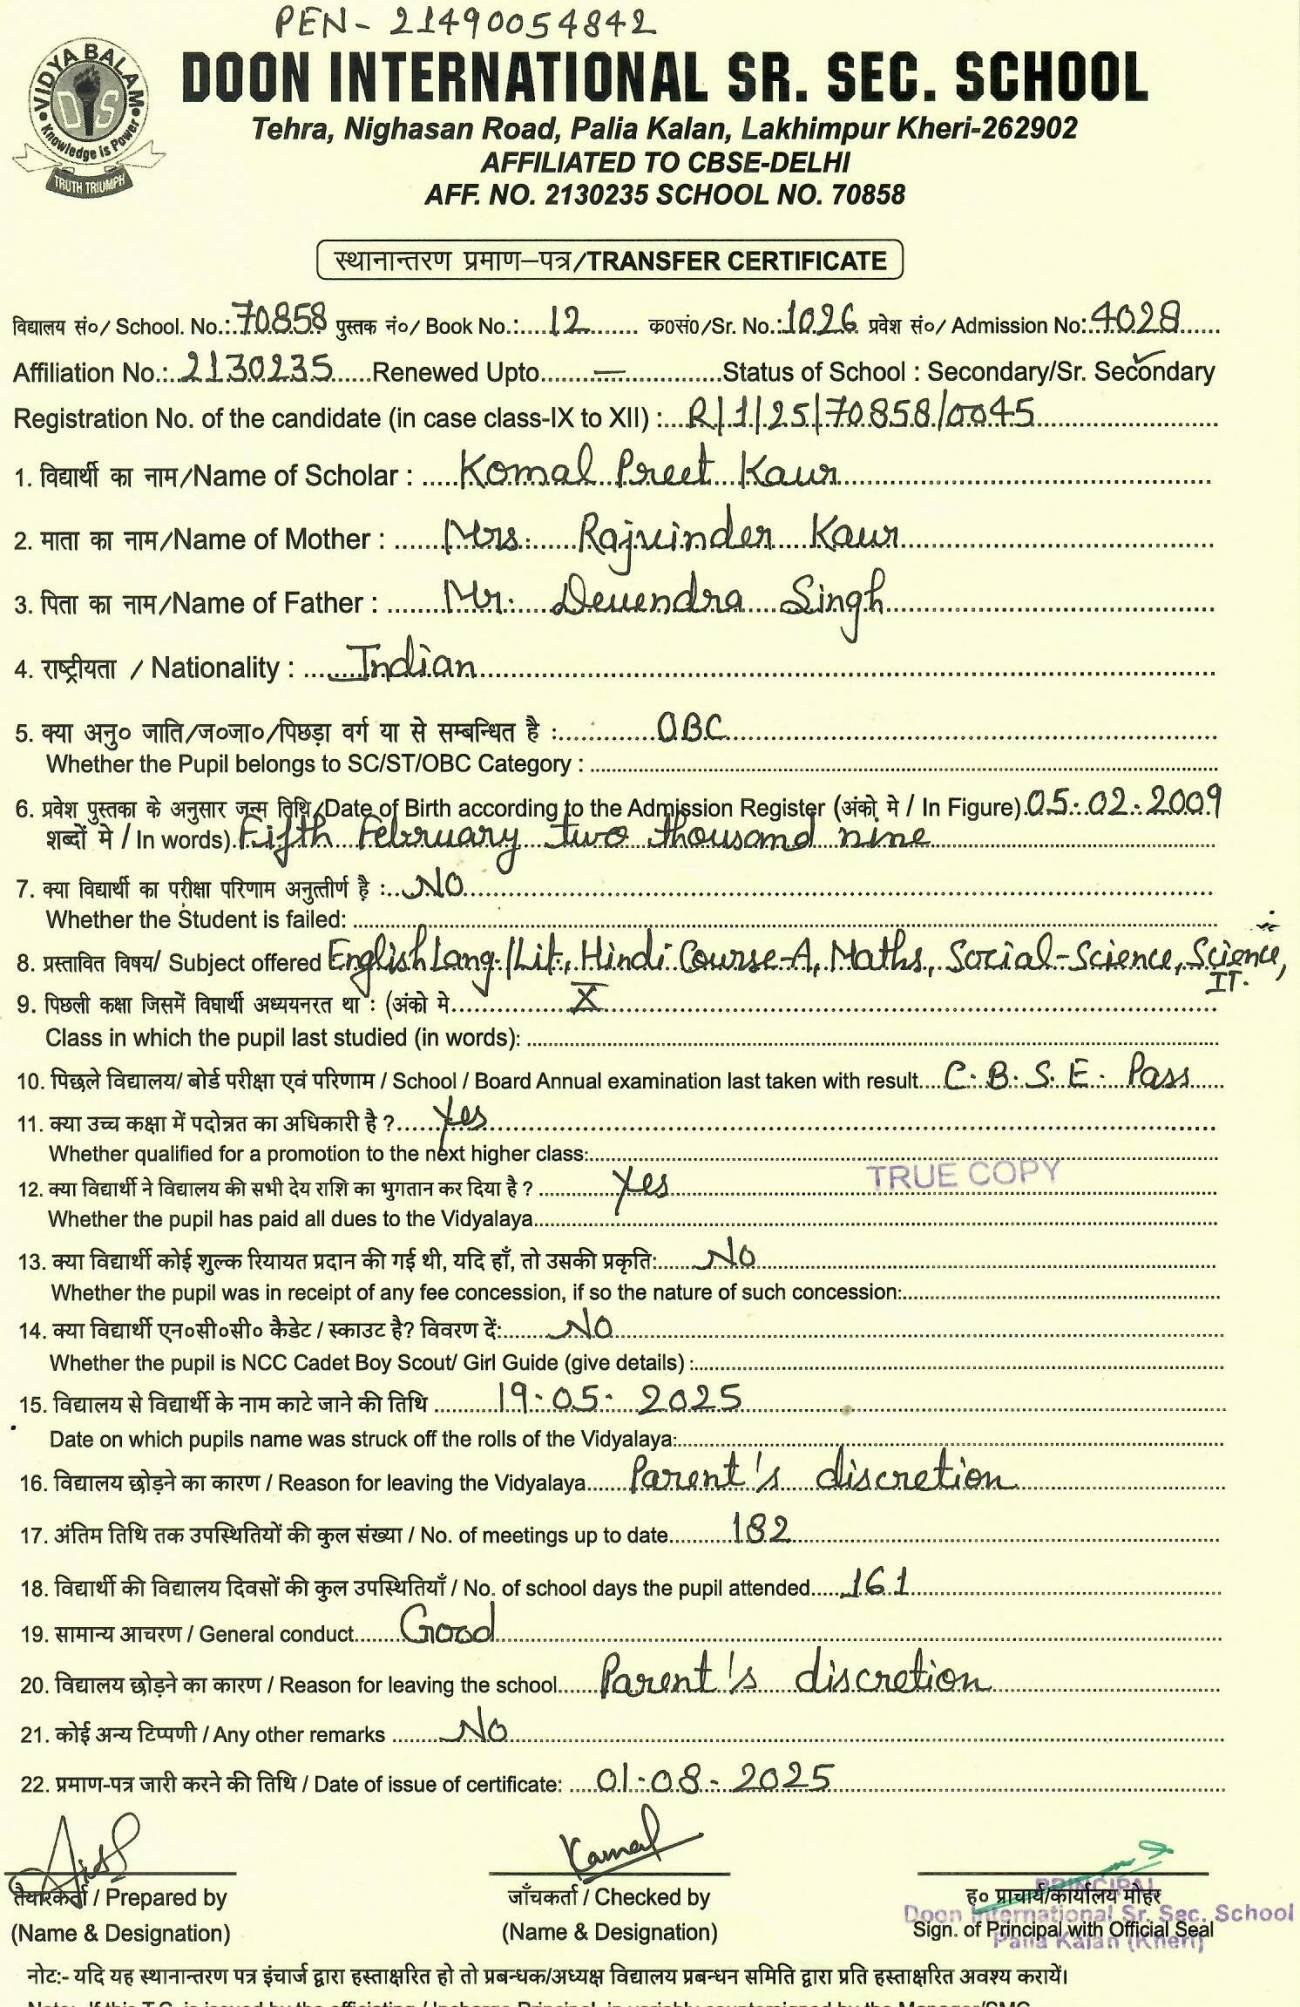 PEN- 21490054842
VIDYA BALAM
DIS
Knowledge is Power
TRUTH TRIUMPH
DOON INTERNATIONAL SR. SEC. SCHOOL
Tehra, Nighasan Road, Palia Kalan, Lakhimpur Kheri-262902
AFFILIATED TO CBSE-DELHI
AFF. NO. 2130235 SCHOOL NO. 70858
स्थानान्तरण प्रमाण–पत्र/TRANSFER CERTIFICATE
विद्यालय सं०/ School. No.: 70858 पुस्तक नं०/ Book No.: 12 क०सं०/Sr. No.: 1026 प्रवेश सं०/ Admission No: 4028
Affiliation No.: 2130235 Renewed Upto — Status of School : Secondary/Sr. Secondary
Registration No. of the candidate (in case class-IX to XII) : R/1/25/70858/0045
1. विद्यार्थी का नाम/Name of Scholar : Komal Preet Kaur
2. माता का नाम/Name of Mother : Mrs. Rajvinder Kaur
3. पिता का नाम/Name of Father : Mr. Devendra Singh
4. राष्ट्रीयता / Nationality : Indian
5. क्या अनु० जाति/ज०जा०/पिछड़ा वर्ग या से सम्बन्धित है : OBC
Whether the Pupil belongs to SC/ST/OBC Category :
6. प्रवेश पुस्तका के अनुसार जन्म तिथि/Date of Birth according to the Admission Register (अंको मे / In Figure) 05-02-2009
शब्दों मे / In words) Fifth February two thousand nine
7. क्या विद्यार्थी का परीक्षा परिणाम अनुत्तीर्ण है : NO
Whether the Student is failed:
8. प्रस्तावित विषय/ Subject offered English Lang./Lit., Hindi Course-A, Maths, Social-Science, Science,
IT.
9. पिछली कक्षा जिसमें विघार्थी अध्ययनरत था : (अंको मे X
Class in which the pupil last studied (in words):
10. पिछले विद्यालय/ बोर्ड परीक्षा एवं परिणाम / School / Board Annual examination last taken with result C.B.S.E. Pass
11. क्या उच्च कक्षा में पदोन्नत का अधिकारी है ? Yes
Whether qualified for a promotion to the next higher class:
TRUE COPY
12. क्या विद्यार्थी ने विद्यालय की सभी देय राशि का भुगतान कर दिया है ? Yes
Whether the pupil has paid all dues to the Vidyalaya
13. क्या विद्यार्थी कोई शुल्क रियायत प्रदान की गई थी, यदि हाँ, तो उसकी प्रकृति: NO
Whether the pupil was in receipt of any fee concession, if so the nature of such concession:
14. क्या विद्यार्थी एन०सी०सी० कैडेट / स्काउट है? विवरण दें: NO
Whether the pupil is NCC Cadet Boy Scout/ Girl Guide (give details) :
15. विद्यालय से विद्यार्थी के नाम काटे जाने की तिथि 19-05-2025
Date on which pupils name was struck off the rolls of the Vidyalaya:
16. विद्यालय छोड़ने का कारण / Reason for leaving the Vidyalaya Parent's discretion
17. अंतिम तिथि तक उपस्थितियों की कुल संख्या / No. of meetings up to date 182
18. विद्यार्थी की विद्यालय दिवसों की कुल उपस्थितियाँ / No. of school days the pupil attended 161
19. सामान्य आचरण / General conduct Good
20. विद्यालय छोड़ने का कारण / Reason for leaving the school Parent's discretion
21. कोई अन्य टिप्पणी / Any other remarks NO
22. प्रमाण-पत्र जारी करने की तिथि / Date of issue of certificate: 01-08-2025
Kamal
तैयारकर्ता / Prepared by
(Name & Designation)
जाँचकर्ता / Checked by
(Name & Designation)
PRINCIPAL
ह० प्राचार्य/कार्यालय मोहर
Doon International Sr. Sec. School
Sign. of Principal with Official Seal
Palia Kalan (Kheri)
नोट:- यदि यह स्थानान्तरण पत्र इंचार्ज द्वारा हस्ताक्षरित हो तो प्रबन्धक/अध्यक्ष विद्यालय प्रबन्धन समिति द्वारा प्रति हस्ताक्षरित अवश्य करायें।
Note:- If this T.C. is issued by the officiating / Incharge Principal, in variably countersigned by the Manager/SMC